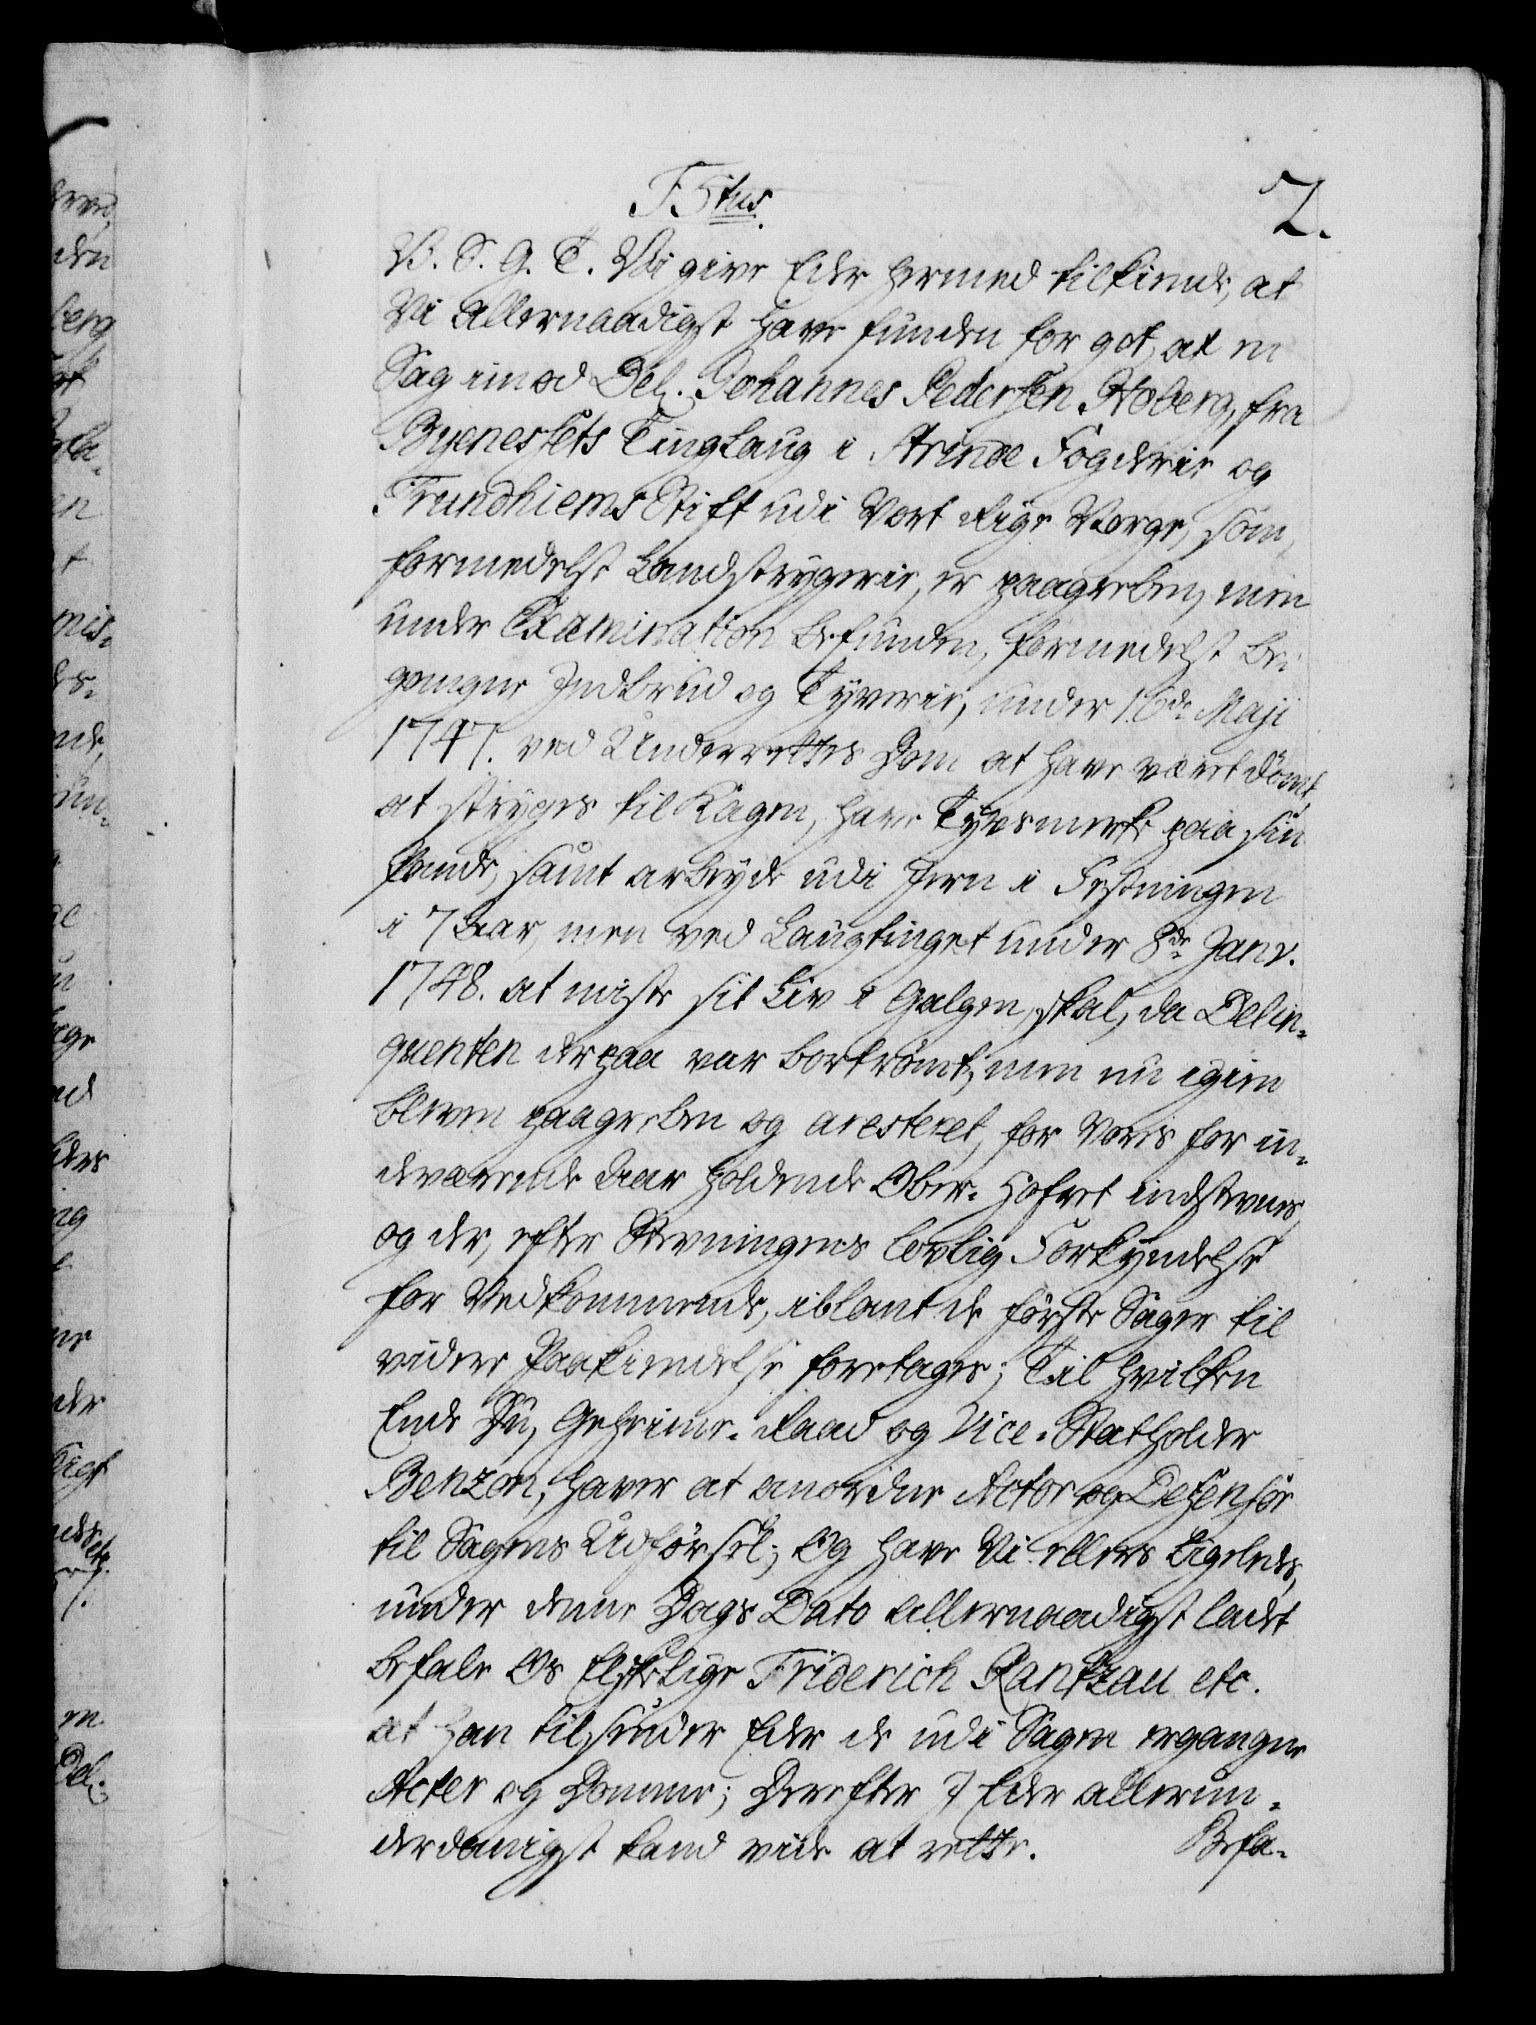 F5tus.
2.
V. S. G. T. Vi give Eder hermed tilkiende, at
Vi allernaadigst have funden for got, at en
Sag imod Del. Johannes Pedersen Hoberg, fra
Byenessets Tinglaug i Strinde Fogderie og
Trundhiems Stift udi Vort Rige Norge, som,
formedelst Landstrygerie, er paagreben, men
under Examination befunden, formedelst be-
gangne Indbrud og Tyverie, under 16de Maji
1747. ved Underrettes Dom at have været dømt,
at stryges til Kagen, have Tyvsmerke paa sin
Pande, samt arbeyde udi Jern i Festningen
i 7 Aar, men ved Laugtinget under 8de Janv.
1748. at miste sit Liv i Galgen, skal, da Delin-
quenten derpaa var bortrømt, men nu igien
bleven paagreben og aresteret, for Vores for in-
deværende Aar holdende Ober-Hofret indstevnes,
og der, efter Stevningens lovlig Forkyndelse
for Vedkommende, iblant de første Sager til
videre Paakiendelse foretages; Til hvilken
Ende Du, Geheime-Raad og Vice-Statholder
Benzon, haver at anordne Actor og Defensor
til Sagens Udførsel; Og have Vi ellers ligeledes,
under denne Dags Dato allernaadigst ladet
befale Os Elskelige Friderich Rantzau etc.
at han tilsender Eder de udi Sagen ergangne
Acter og Domme; Derefter I Eder allerun-
derdanigst kand vide at rette.
Befa-